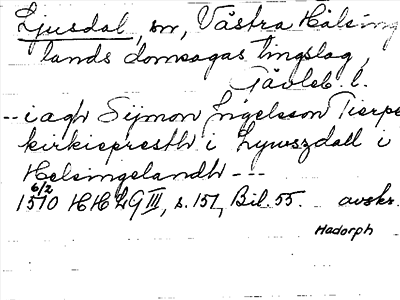 Ljusdal, sn, Västra Hälsing
lands domsagas tingslag,
Gävleb l.
-- iagh Sijmon Ingelsson Tierpe
kirkiepresth i Lywszdall i
Helsingelandh ---
6/2
1510 HH LG III, s. 151, Bil. 55. avskr.
Hadorph